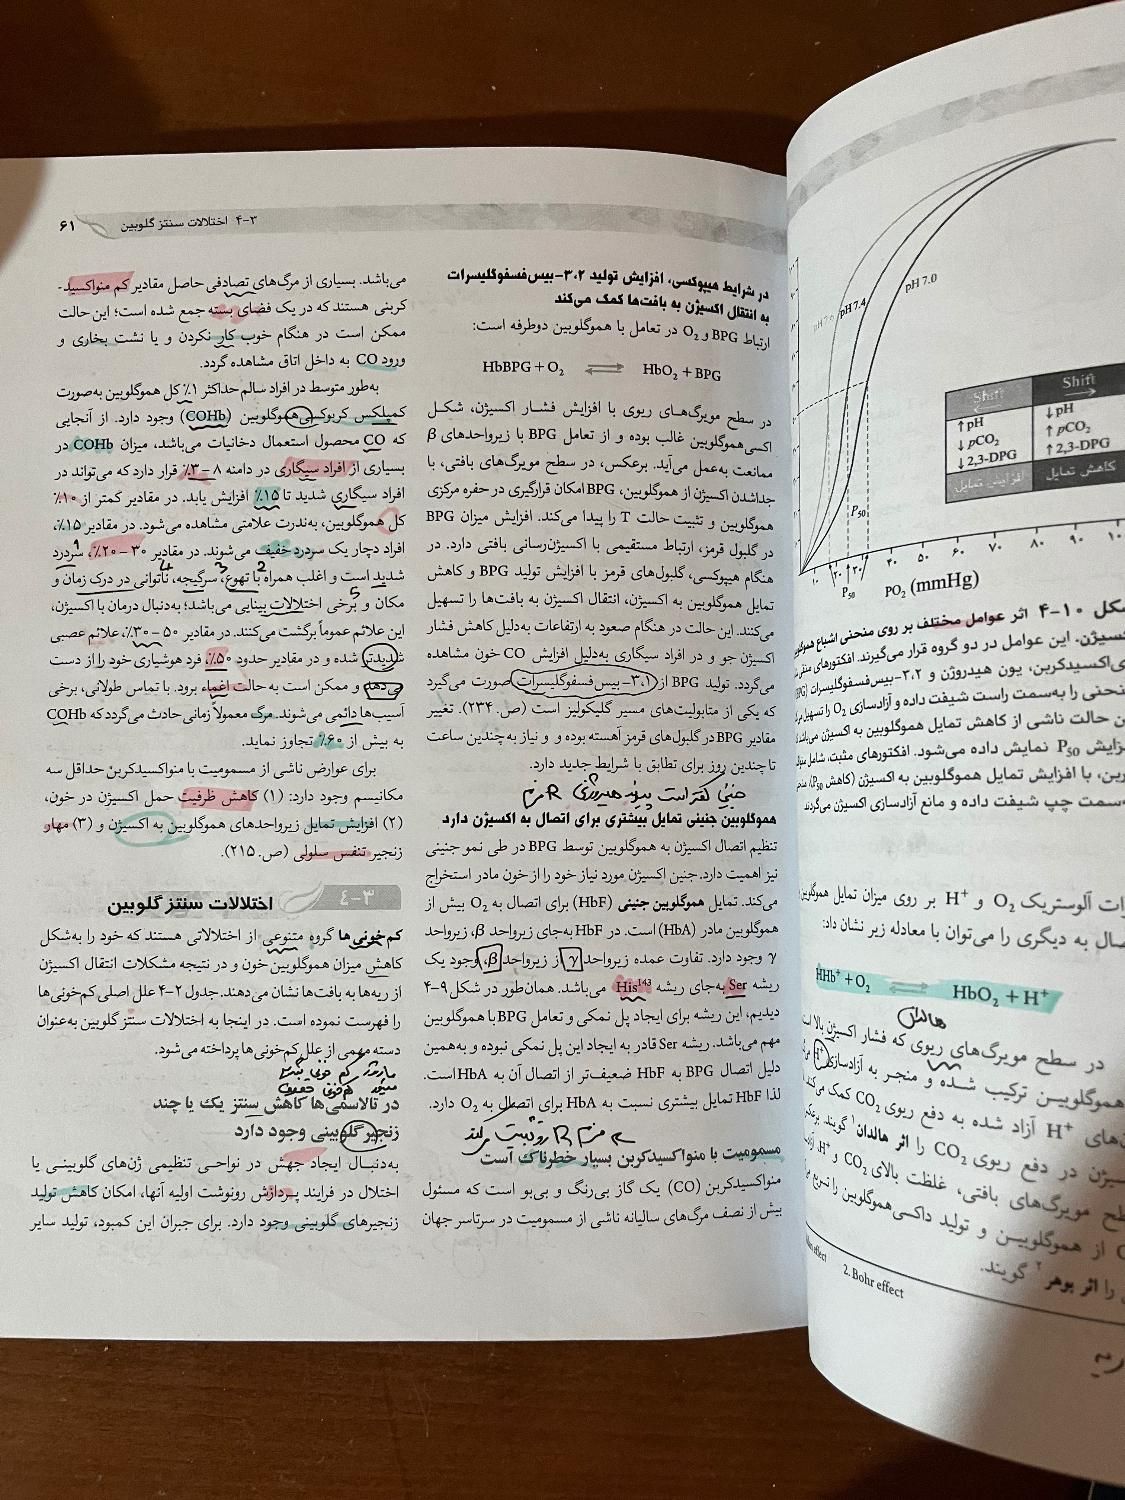 ۳-۴ اختلالات سنتز گلوبین
۶۱
در شرایط هیپوکسی، افزایش تولید ۳،۲-بیس‌فسفوگلیسرات
به انتقال اکسیژن به بافت‌ها کمک می‌کند
ارتباط BPG و O₂ در تعامل با هموگلوبین دوطرفه است:
HbBPG + O₂ ⇌ HbO₂ + BPG
در سطح مویرگ‌های ریوی با افزایش فشار اکسیژن، شکل
اکسی‌هموگلوبین غالب بوده و از تعامل BPG با زیرواحدهای β
ممانعت به‌عمل می‌آید. برعکس، در سطح مویرگ‌های بافتی، با
جداشدن اکسیژن از هموگلوبین، BPG امکان قرارگیری در حفره مرکزی
هموگلوبین و تثبیت حالت T را پیدا می‌کند. افزایش میزان BPG
در گلبول قرمز، ارتباط مستقیمی با اکسیژن‌رسانی بافتی دارد. در
هنگام هیپوکسی، گلبول‌های قرمز با افزایش تولید BPG و کاهش
تمایل هموگلوبین به اکسیژن، انتقال اکسیژن به بافت‌ها را تسهیل
می‌کنند. این حالت در هنگام صعود به ارتفاعات به‌دلیل کاهش فشار
اکسیژن جو و در افراد سیگاری به‌دلیل افزایش CO خون مشاهده
می‌گردد. تولید BPG از ۳،۱-بیس‌فسفوگلیسرات صورت می‌گیرد
که یکی از متابولیت‌های مسیر گلیکولیز است (ص. ۲۳۴). تغییر
مقادیر BPG در گلبول‌های قرمز آهسته بوده و و نیاز به چندین ساعت
تا چندین روز برای تطابق با شرایط جدید دارد.
هموگلوبین جنینی تمایل بیشتری برای اتصال به اکسیژن دارد
تنظیم اتصال اکسیژن به هموگلوبین توسط BPG در طی نمو جنینی
نیز اهمیت دارد. جنین اکسیژن مورد نیاز خود را از خون مادر استخراج
می‌کند. تمایل هموگلوبین جنینی (HbF) برای اتصال به O₂ بیش از
هموگلوبین مادر (HbA) است. در HbF به‌جای زیرواحد β، زیرواحد
γ وجود دارد. تفاوت عمده زیرواحد γ از زیرواحد β، وجود یک
ریشه Ser به‌جای ریشه His¹⁴³ می‌باشد. همان‌طور در شکل ۹-۴
دیدیم، این ریشه برای ایجاد پل نمکی و تعامل BPG با هموگلوبین
مهم می‌باشد. ریشه Ser قادر به ایجاد این پل نمکی نبوده و به‌همین
دلیل اتصال BPG به HbF ضعیف‌تر از اتصال آن به HbA است.
لذا HbF تمایل بیشتری نسبت به HbA برای اتصال به O₂ دارد.
مسمومیت با منواکسیدکربن بسیار خطرناک است
منواکسیدکربن (CO) یک گاز بی‌رنگ و بی‌بو است که مسئول
بیش از نصف مرگ‌های سالیانه ناشی از مسمومیت در سرتاسر جهان
می‌باشد. بسیاری از مرگ‌های تصادفی حاصل مقادیر کم منواکسید-
کربنی هستند که در یک فضای بسته جمع شده است؛ این حالت
ممکن است در هنگام خوب کار نکردن و یا نشت بخاری و
ورود CO به داخل اتاق مشاهده گردد.
به‌طور متوسط در افراد سالم حداکثر ۱٪ کل هموگلوبین به‌صورت
کمپلکس کربوکسی‌هموگلوبین (COHb) وجود دارد. از آنجایی
که CO محصول استعمال دخانیات می‌باشد، میزان COHb در
بسیاری از افراد سیگاری در دامنه ۸-۳٪ قرار دارد که می‌تواند در
افراد سیگاری شدید تا ۱۵٪ افزایش یابد. در مقادیر کمتر از ۱۰٪
کل هموگلوبین، به‌ندرت علامتی مشاهده می‌شود. در مقادیر ۱۵٪،
افراد دچار یک سردرد خفیف می‌شوند. در مقادیر ۳۰-۲۰٪، سردرد
شدید است و اغلب همراه با تهوع، سرگیجه، ناتوانی در درک زمان و
مکان و برخی اختلالات بینایی می‌باشد؛ به‌دنبال درمان با اکسیژن،
این علائم عموماً برگشت می‌کنند. در مقادیر ۵۰-۳۰٪، علائم عصبی
شدیدتر شده و در مقادیر حدود ۵۰٪، فرد هوشیاری خود را از دست
می‌دهد و ممکن است به حالت اغماء برود. با تماس طولانی، برخی
آسیب‌ها دائمی می‌شوند. مرگ معمولاً زمانی حادث می‌گردد که COHb
به بیش از ۶۰٪ تجاوز نماید.
برای عوارض ناشی از مسمومیت با منواکسیدکربن حداقل سه
مکانیسم وجود دارد: (۱) کاهش ظرفیت حمل اکسیژن در خون،
(۲) افزایش تمایل زیرواحدهای هموگلوبین به اکسیژن و (۳) مهار
زنجیر تنفس سلولی (ص. ۲۱۵).
۳-۴
اختلالات سنتز گلوبین
کم‌خونی‌ها گروه متنوعی از اختلالاتی هستند که خود را به‌شکل
کاهش میزان هموگلوبین خون و در نتیجه مشکلات انتقال اکسیژن
از ریه‌ها به بافت‌ها نشان می‌دهند. جدول ۲-۴ علل اصلی کم‌خونی‌ها
را فهرست نموده است. در اینجا به اختلالات سنتز گلوبین به‌عنوان
دسته مهمی از علل کم‌خونی‌ها پرداخته می‌شود.
در تالاسمی‌ها کاهش سنتز یک یا چند
زنجیر گلوبینی وجود دارد
به‌دنبال ایجاد جهش در نواحی تنظیمی ژن‌های گلوبینی یا
اختلال در فرایند پردازش رونوشت اولیه آنها، امکان کاهش تولید
زنجیرهای گلوبینی وجود دارد. برای جبران این کمبود، تولید سایر
pH 7.6
pH 7.4
pH 7.0
Shift
Shift
↑ pH
↓ pH
↓ pCO₂
↑ pCO₂
↓ 2,3-DPG
↑ 2,3-DPG
افزایش تمایل
کاهش تمایل
P₅₀
۱۰ ۲۰ ۴۰ ۵۰ ۶۰ ۷۰ ۸۰ ۹۰
P₅₀
PO₂ (mmHg)
شکل ۱۰-۴ اثر عوامل مختلف بر روی منحنی اشباع
این عوامل در دو گروه قرار می‌گیرند. افکتورهای
دی‌اکسیدکربن، یون هیدروژن و ۳،۲-بیس‌فسفوگلیسرات
منحنی را به‌سمت راست شیفت داده و آزادسازی O₂ را
حالت ناشی از کاهش تمایل هموگلوبین به اکسیژن
افزایش P₅₀ نمایش داده می‌شود. افکتورهای مثبت، شامل
با افزایش تمایل هموگلوبین به اکسیژن (کاهش P₅₀)،
به‌سمت چپ شیفت داده و مانع آزادسازی اکسیژن می‌گردند
آلوستریک O₂ و H⁺ بر روی میزان تمایل هموگلوبین
به دیگری را می‌توان با معادله زیر نشان داد:
HHb⁺ + O₂ ⇌ HbO₂ + H⁺
هالدان
در سطح مویرگ‌های ریوی که فشار اکسیژن بالا
هموگلوبین ترکیب شده و منجر به آزادسازی H⁺
H⁺ آزاد شده به دفع ریوی CO₂ کمک می‌کند
در دفع ریوی CO₂ را اثر هالدان¹ گویند.
مویرگ‌های بافتی، غلظت بالای CO₂ و H⁺،
از هموگلوبین و تولید داکسی‌هموگلوبین را
را اثر بوهر² گویند.
effect
2. Bohr effect